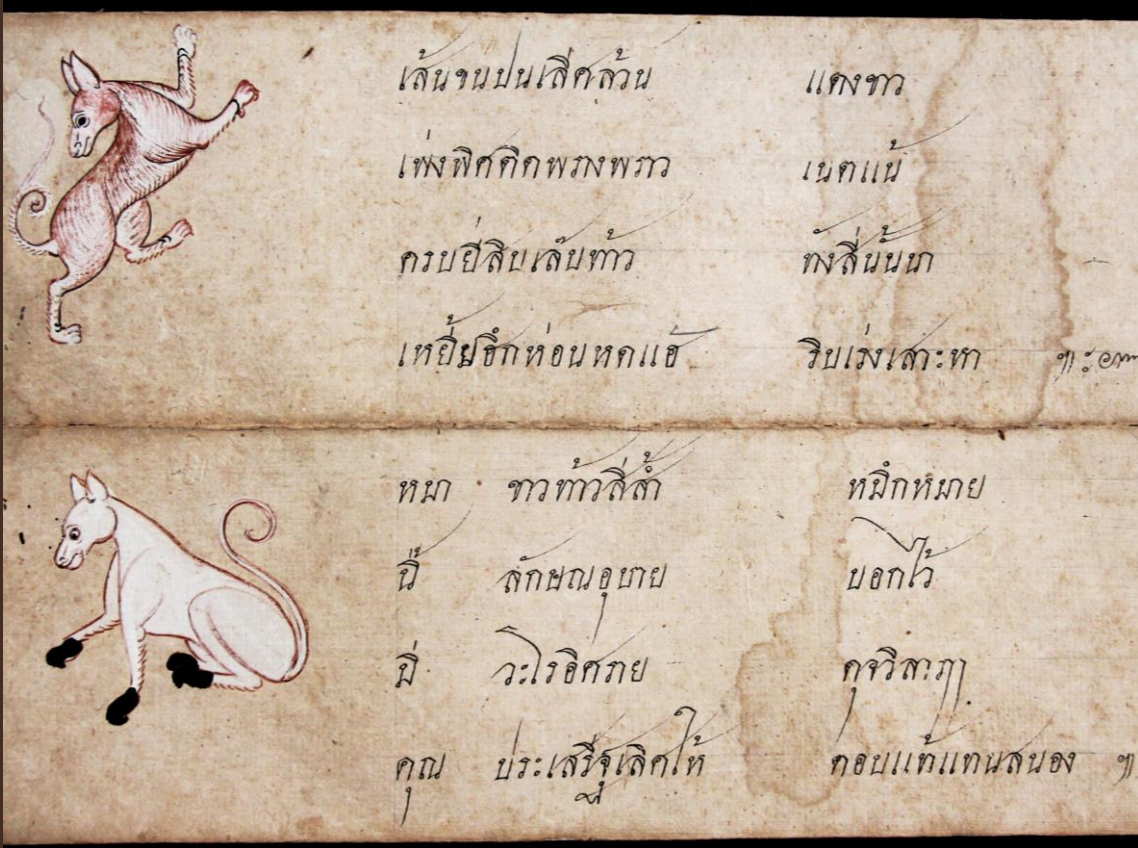 เส้นขนปนเสีศล้วน แดงขาว
เพ่งพิศคิดพรางพราว เนตแน้
ครบยี่สิบเล๊บท้าว ทังสี่นั้นนา
เหยี้ยฮึกห่อนหดแฮ้ ริบเร่งเสาะหา ๚ะ
หมา ขาวท้าวสี่ส้ำ หมึกหมาย
นี้ ลักษณอุบาย บอกไว้
มี วะโรอิศราย ดุจวิสาฦๅ
คุณ ประเสรีฐเลิศให้ ตอบแท้แทนสนอง ๚